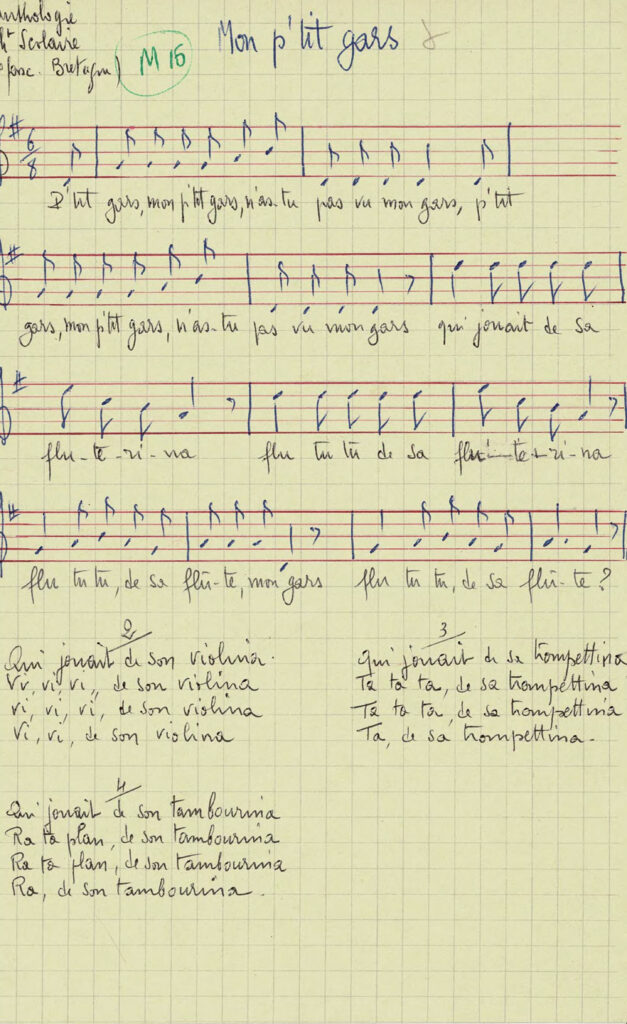 Anthologie
Scolaire
fasc. Bretagne)
M 16
Mon p'tit gars
6
8
P'tit gars, mon p'tit gars, n'as-tu pas vu mon gars, p'tit
gars, mon p'tit gars, n'as-tu pas vu mon gars qui jouait de sa
flu-te-ri-na flu tu tu de sa flu-te-ri-na
flu tu tu, de sa flû-te, mon gars flu tu tu, de sa flû-te ?
2
Qui jouait de son violina.
Vi, vi, vi, de son violina
vi, vi, vi, de son violina
Vi, vi, de son violina
3
Qui jouait de sa trompettina
Ta ta ta, de sa trompettina
Ta ta ta, de sa trompettina
Ta, de sa trompettina.
4
Qui jouait de son tambourina
Ra ta plan, de son tambourina
Ra ta plan, de son tambourina
Ra, de son tambourina.